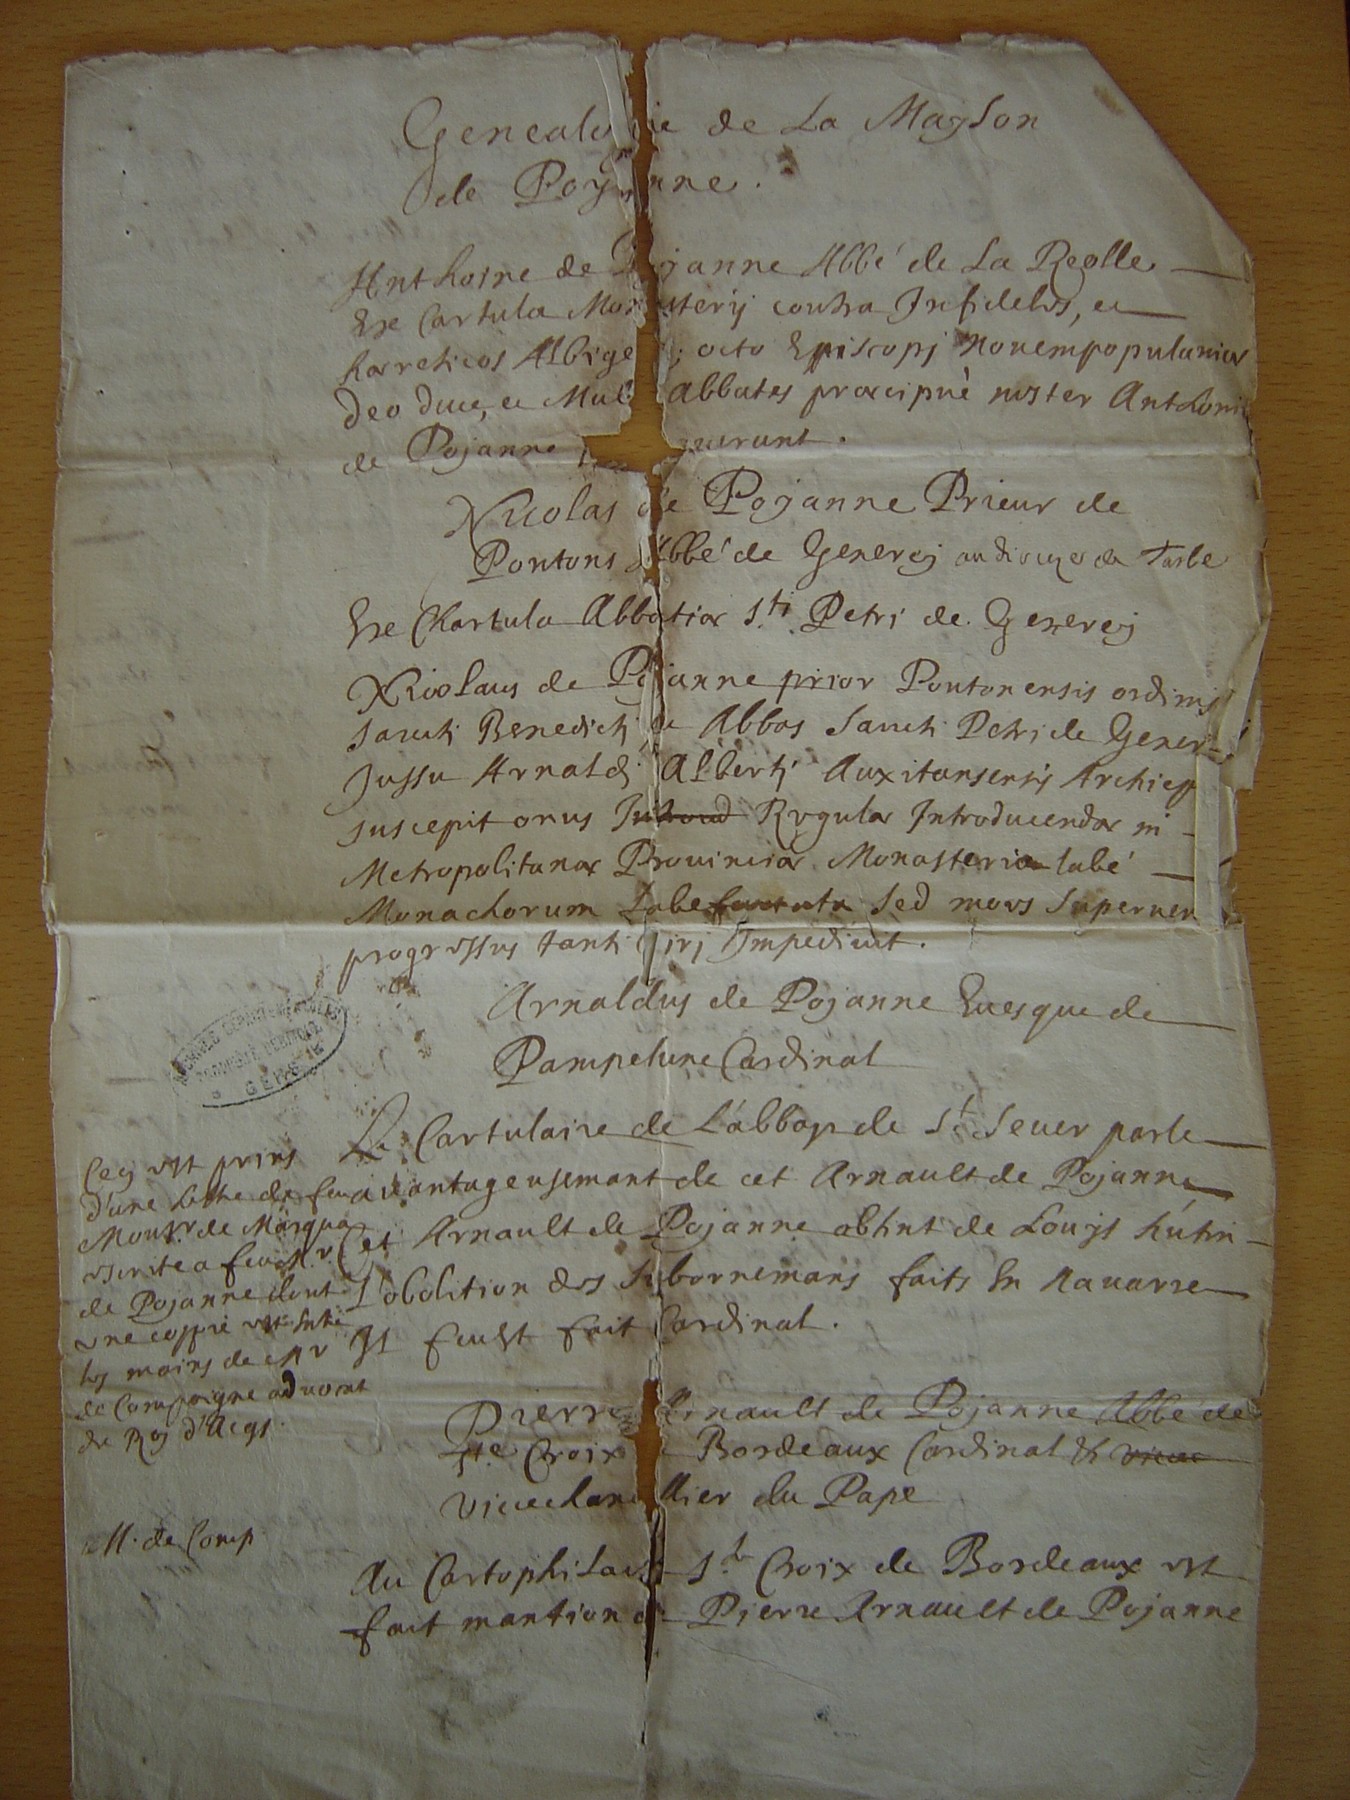 Genealogie de La Mayson
de Poyanne.
Anthoine de Poyanne Abbé de La Reolle
Exe Cartula Monasterij contra Infideles, ec
hæreticos Albige ; octo Episcopj Nouempopulaniæ
Deo duce, ec Mul abbates præcipuè noster Anthoni
de Poyanne uerunt.
Nicolas de Poyanne Prieur de
Pontons Abbé de Generez au diocese de Tarbe
Exe Chartula Abbatiæ S.ti Petri de Generez
Nicolaus de Poyanne prior Pontonensis ordinis
sancti Benedicti ec Abbas Sancti Petri de Gener
Jussu Arnaldi Alberti Auxitanensis Archiep
suscepit onus Regulæ Introducendæ in
Metropolitanæ Prouinciæ Monasteria labé
Monachorum Labefactata Sed mors Superuen
progressus tanti virj Impediuit.
Arnaldus de Poyanne Euesque de
Pampelune Cardinal
Le Cartulaire de L'abbaye de St. Seuer parle
auantageusemant de cet Arnault de Poyanne
Cet Arnault de Poyanne obtint de Louys hutin
L'abolition des subornemans faits En Nauarre
Il feust fait Cardinal.
Cecy est prins
d'une lettre de feu
Monsr. de Marqua
escrite a feu Mr
de Poyanne dont
une coppie est Entre
les mains de Mr
de Compaigne aduocat
du Roy d'Acqs.
Pierre Arnault de Poyanne Abbé de
Ste. Croix de Bordeaux Cardinal Et vice
vicechancellier du Pape
M. de Comp
Au Cartophilace Ste Croix de Bordeaux est
fait mantion de Pierre Arnault de Poyanne
ARCHIVES DEPARTEMENTALES
GERS